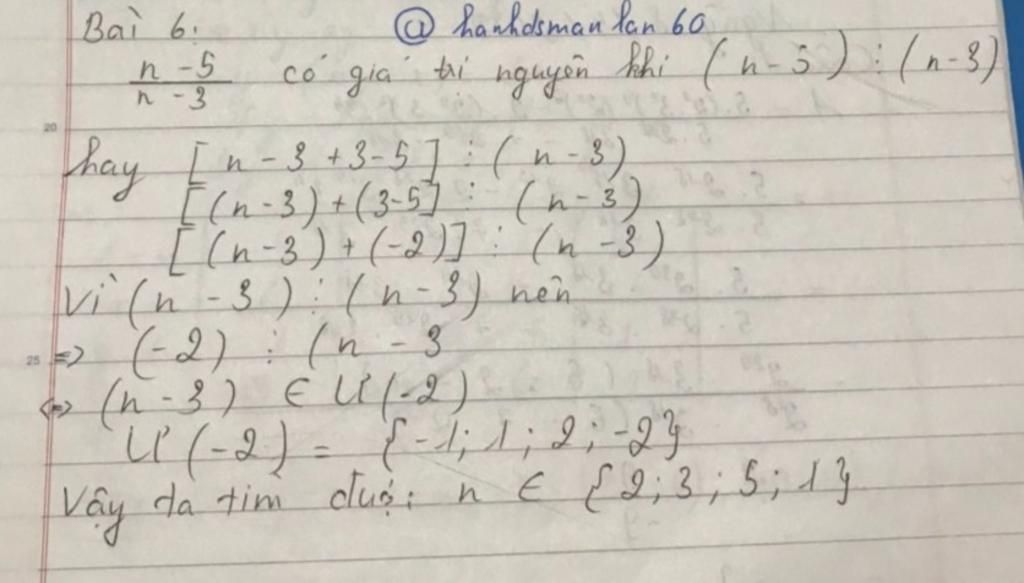 Bài 6: @ hanhdsmanlan60
n - 5 / n - 3 có giá trị nguyên khi (n - 5) ⋮ (n - 3)
20
hay [n - 3 + 3 - 5] ⋮ (n - 3)
[(n - 3) + (3 - 5] ⋮ (n - 3)
[(n - 3) + (-2)] ⋮ (n - 3)
Vì (n - 3) ⋮ (n - 3) nên
25 => (-2) ⋮ (n - 3
<=> (n - 3) ∈ Ư(-2)
Ư(-2) = {-1; 1; 2; -2}
Vậy ta tìm được: n ∈ {2; 3; 5; 1}